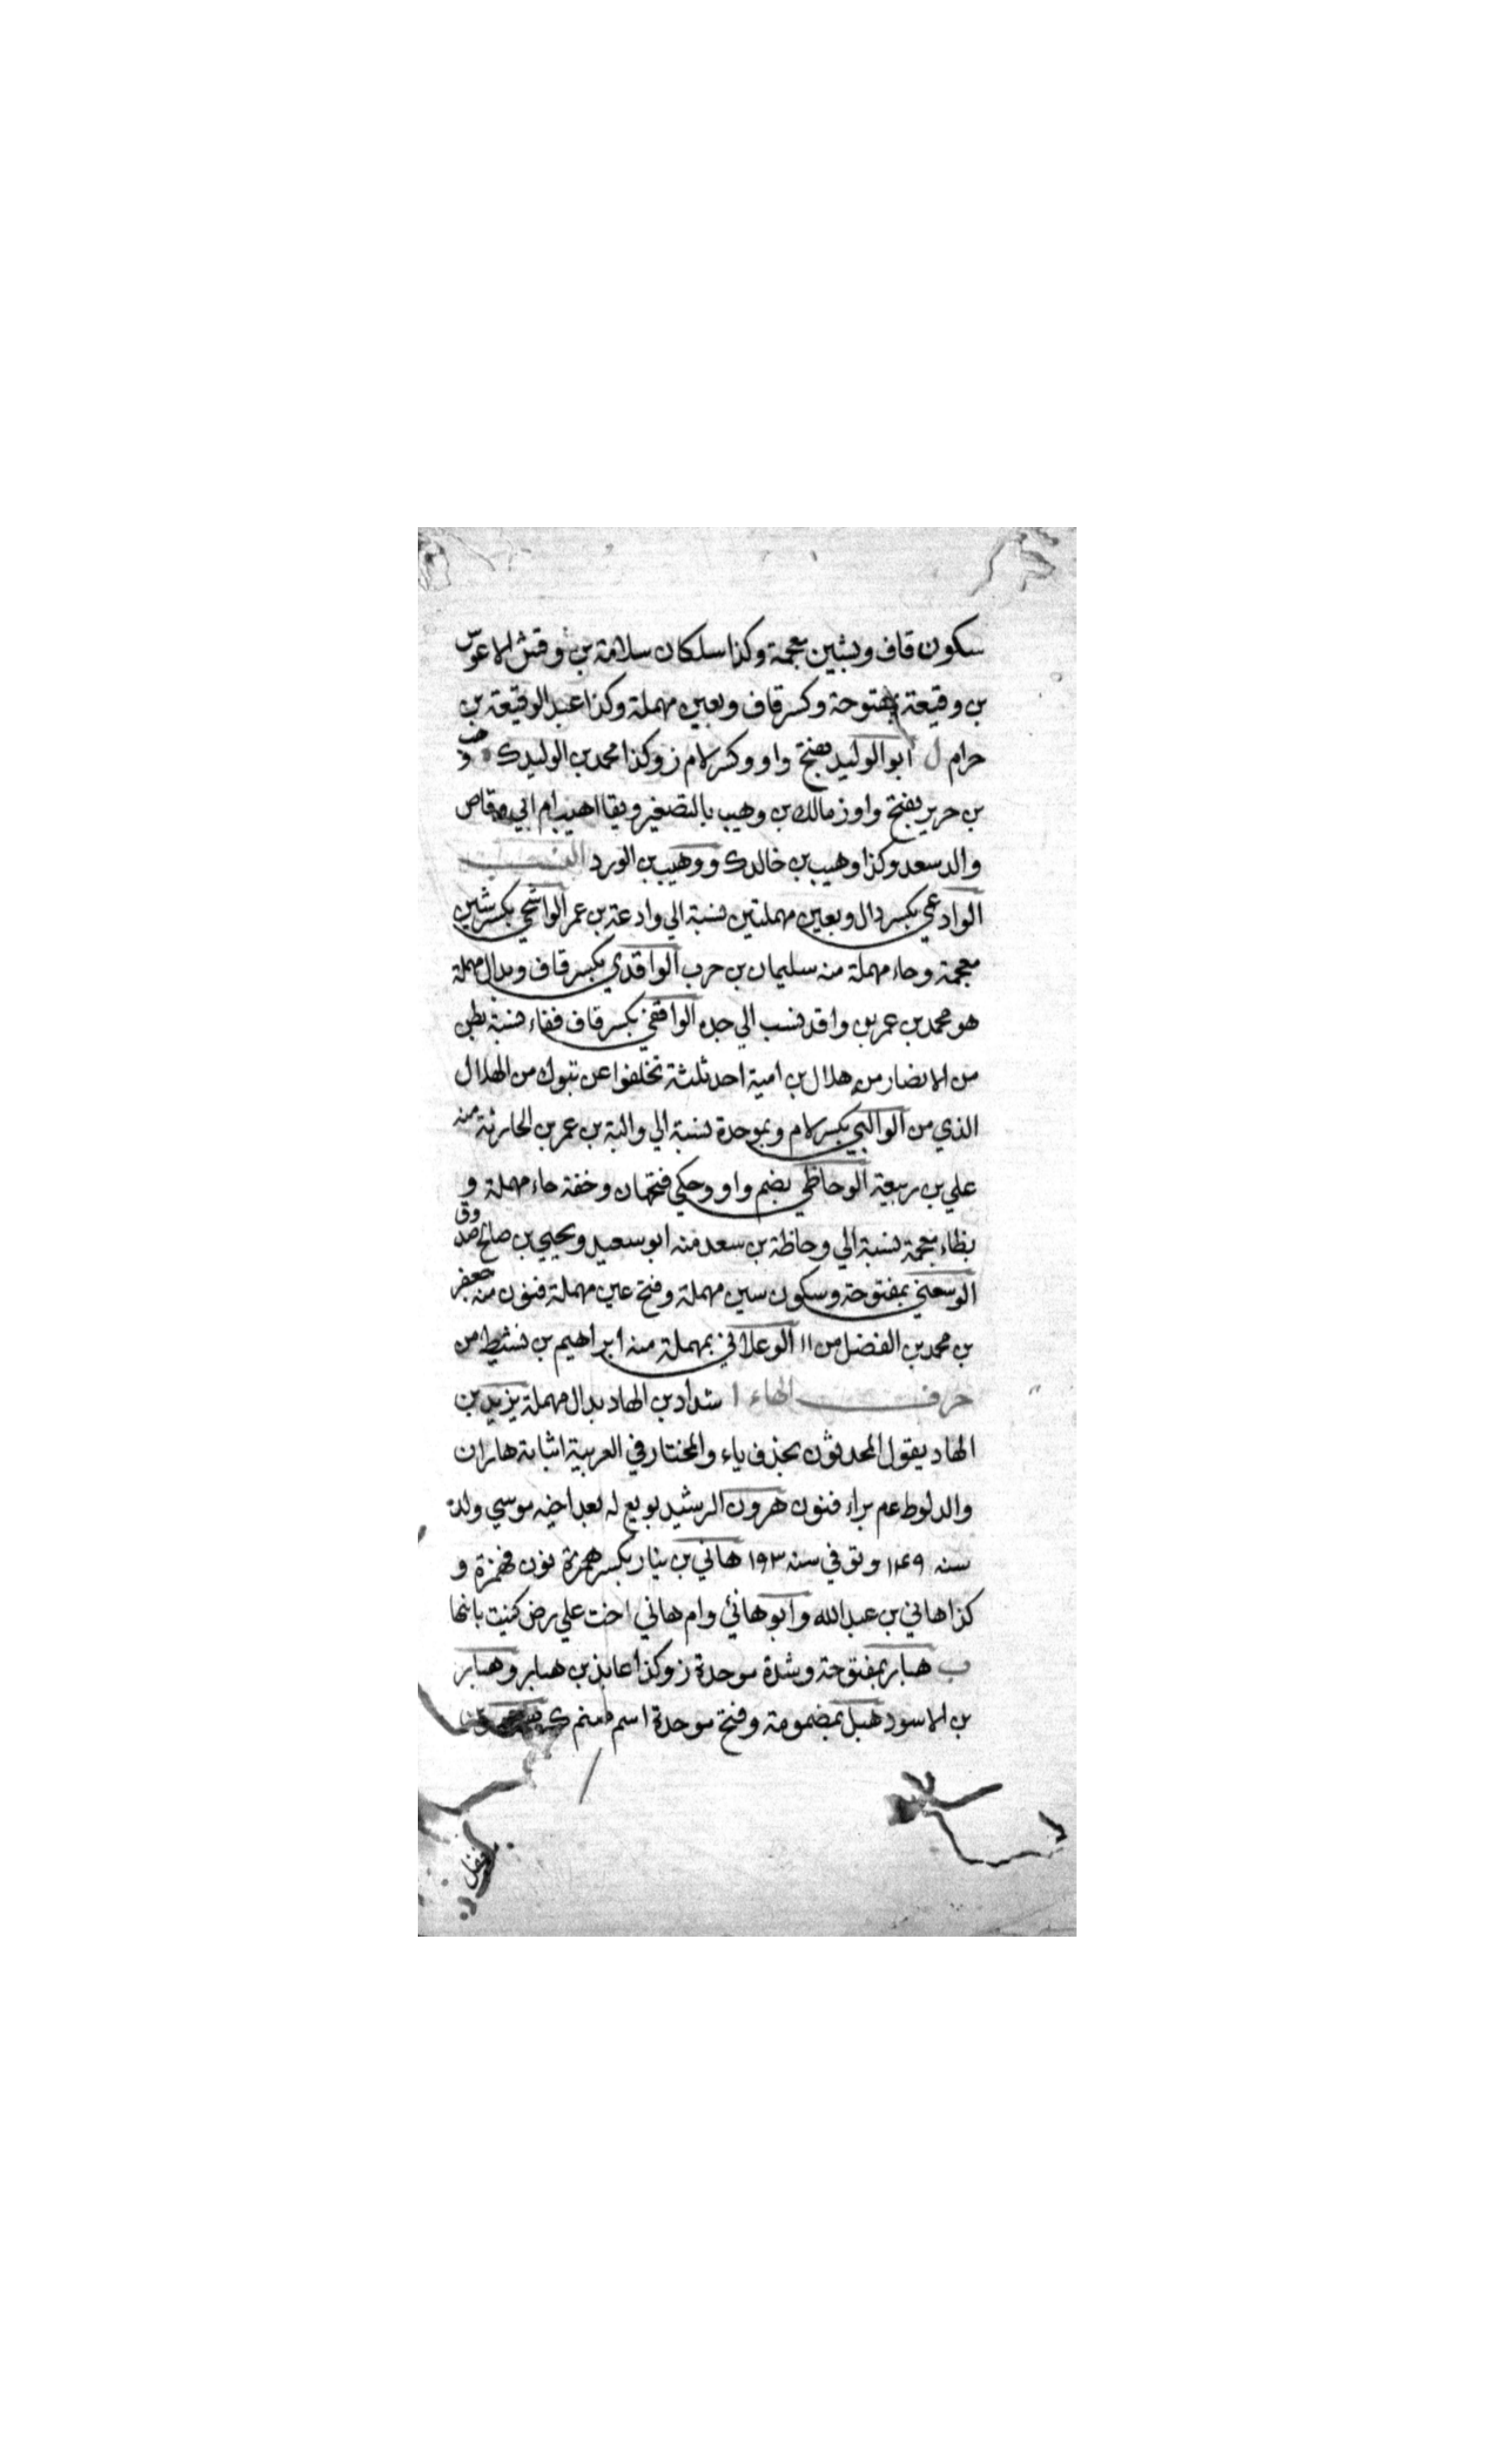 سكون قاف وبشين معجمة وكذا سلكان سلامة بن وقش الاعوس
بن وقيعة بمفتوحة وكسر قاف وبعين مهملة وكذا عبد الوقيعة بن
حرام ل ابو الوليد بفتح واو وكسر لام ز وكذا محمد بن الوليد ك
بن حرير بفتح واو ز مالك بن وهيب بالتصغير ويقا اهيب ام ابي وقاص
والد سعد وكذا وهيب بن خالد ك و ووهيب بن الورد
الوادعي بكسر دال وبعين مهملتين نسبة الي وادعة بن عمر الواشحي بكسر شين
معجمة وحاء مهملة منه سليمان بن حرب الواقدي بكسر قاف وبدال مهملة
هو محمد بن عمر بن واقد نسب الي جده الواقفي بكسر قاف ففاء نسبة بطن
من الانصار منه هلال بن امية احد ثلثة تخلفوا عن تبوك من الهلال
الذي من الوالبي بكسر لام وبموحدة نسبة الي والبة بن عمر بن الحارثة منه
علي بن ربيعة الوحاظي بضم واو وحكي فتحهمان وخفة حاء مهملة و
بظاء معجمة نسبة الي وحاظة بن سعد منه ابو سعيد ويحيي بن صالح
الوسعني بمفتوحة وسكون سين مهملة وفتح عين مهملة فنون منه جعفر
بن محمد بن الفضل من ١١ الوعلاني بمهملة منه ابراهيم بن نشيط من
حرف الهاء ا شداد بن الهاد بدال مهملة يزيد بن
الهاد يقول المحدثون بحذف ياء والمختار في العربية اثباته هاران
والد لوط عم براء فنون هرون الرشيد بويع له بعد اخيه موسي ولد
سنه ١٤٩ وتوفي سنه ١٩٣ هاني بن نيار بكسر همزة نون فهمزة و
كذا هاني بن عبد الله وابو هانئ وام هاني اخت علي رض كنيت بابنها
ب هبار بمفتوحة وشدة موحدة ز وكذا عابذ بن هبار وهبار
بن الاسود هبل بمضمومة وفتح موحدة اسم صنم ك